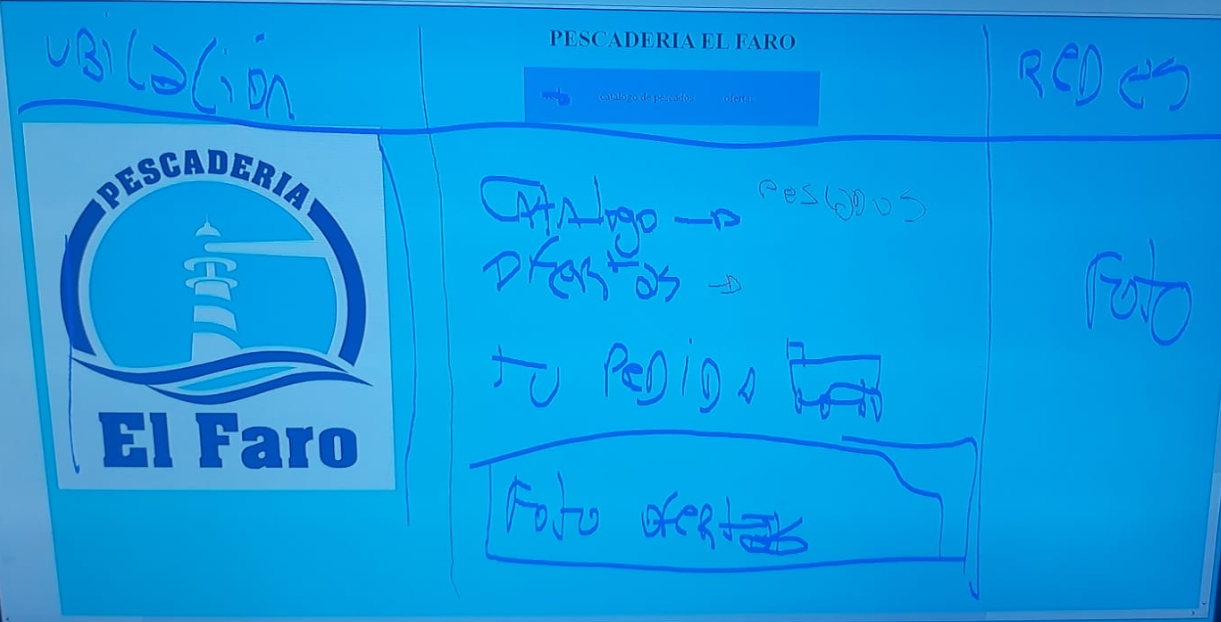 UBICACIÓN
PESCADERIA EL FARO
REDES
catalogo de pescados ofertas
PESCADERIA
El Faro
CATALOGO →
PESCADOS
OFERTAS →
FOTO
TU PEDIDO
FOTO OFERTAS